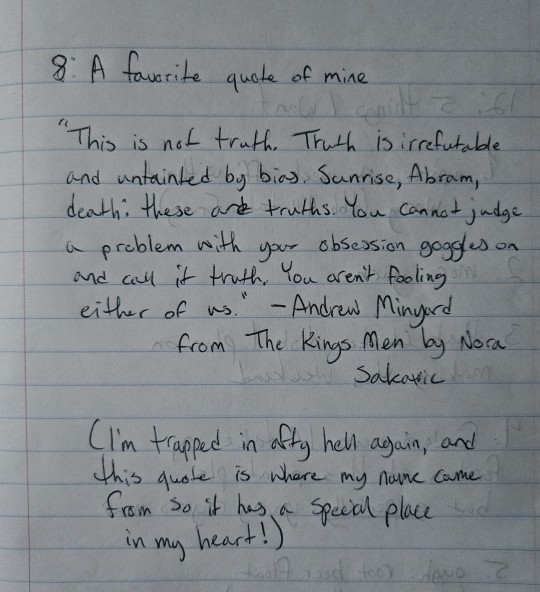 8: A favorite quote of mine
"This is not truth. Truth is irrefutable
and untainted by bias. Sunrise, Abram,
death: these are truths. You cannot judge
a problem with your obsession goggles on
and call it truth. You aren't fooling
either of us." - Andrew Minyard
from The Kings Men by Nora
Sakavic
(I'm trapped in aftg hell again, and
this quote is where my name came
from so it has a special place
in my heart!)